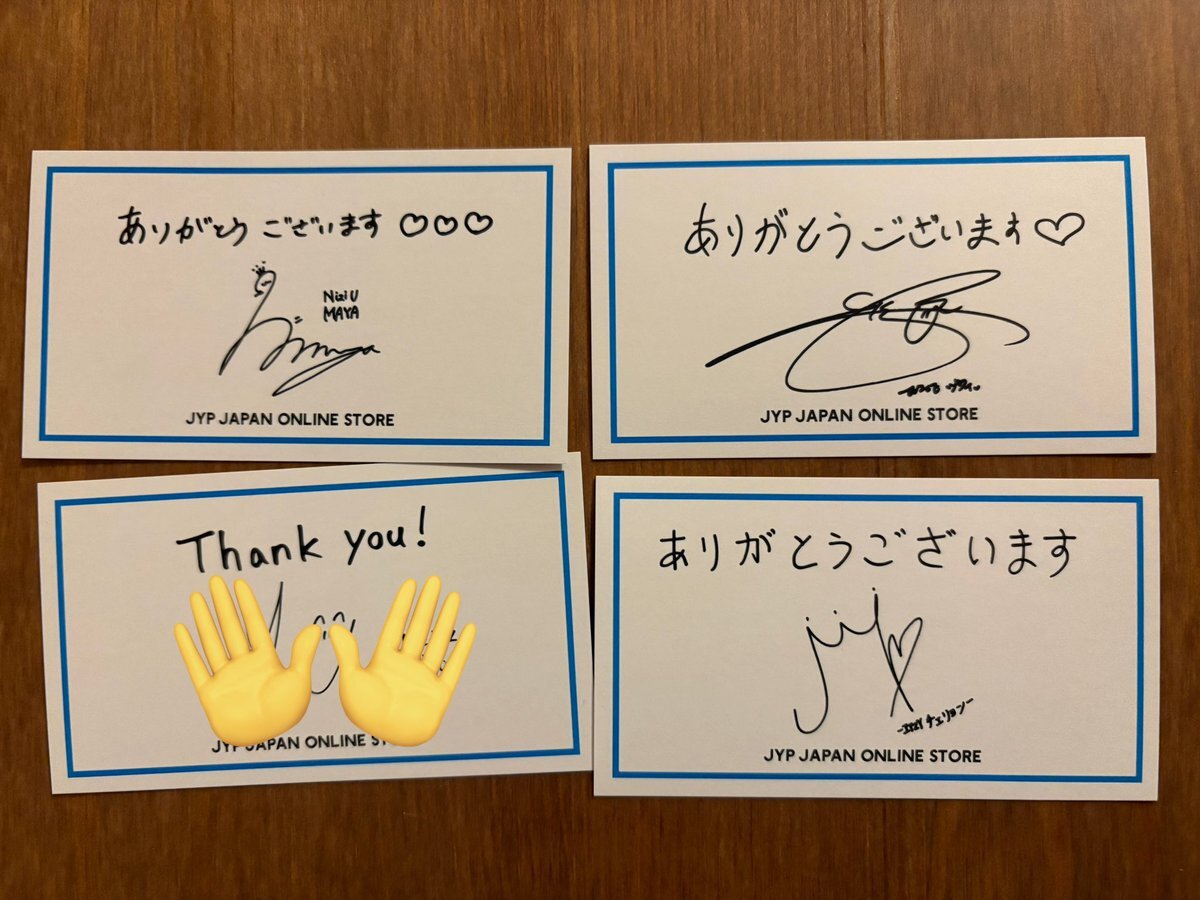 ありがとう ございます ♡♡♡
NiziU
MAYA
JYP JAPAN ONLINE STORE
ありがとうございます♡
JYP JAPAN ONLINE STORE
Thank you!
JYP JAPAN ONLINE
ありがとうございます
-ITZY チェリョン-
JYP JAPAN ONLINE STORE